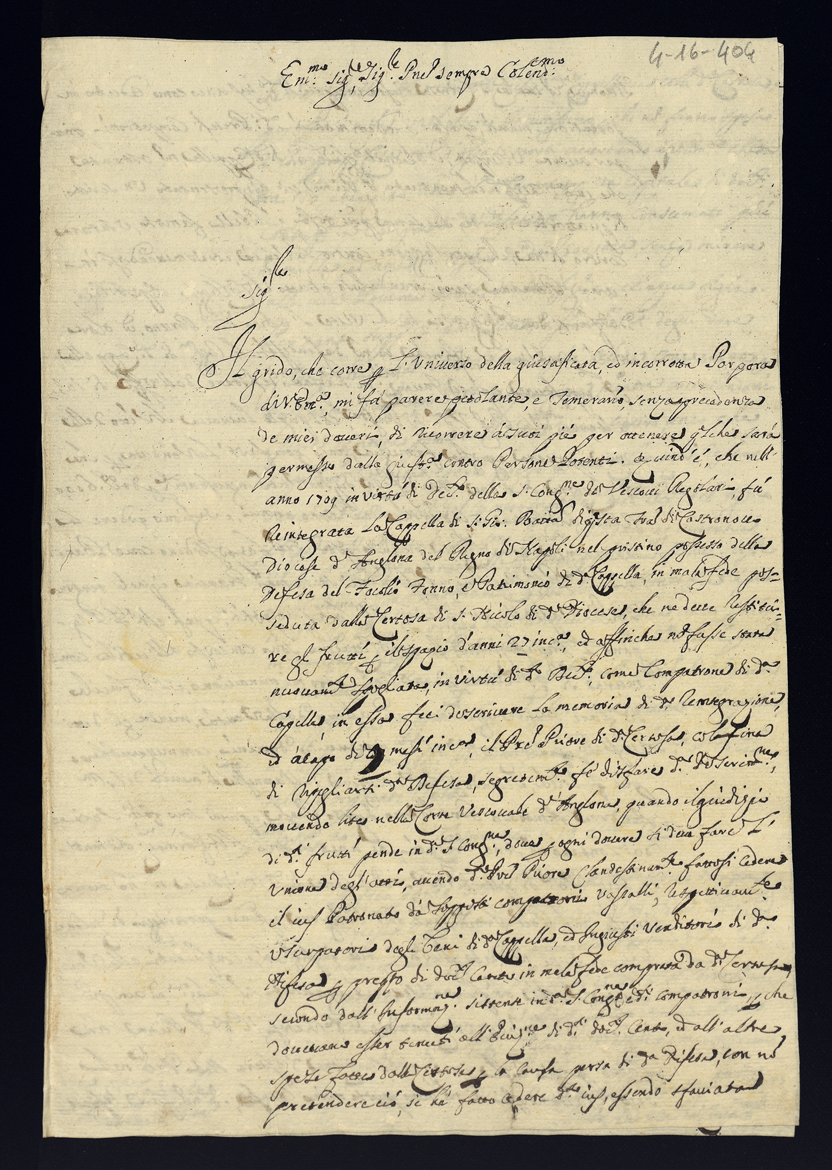 4-16-404
Em:mo Sig:re Sig:re Pnel sempre Colend:emo
Sig:re
Il grido, che corre p L'Universo della giusta, ed incorrotta Porpora
di V. Em:a, mi fà parere petulante, e Temerario, senza precedenza
de miei doveri, di ricorrere à suoi pié per ottenere qlche sarà
permesso dalla giust:a contro Persone Potenti. E quind'é, che nell'
anno 1709 in virtù di De:to della S. Cong:ne de Vescovi Regolari, fù
Reintegrata La Cappella di S. Gio: Batta di qsta Tra di Castronovo
Diocese d'Anglona del Regno di Napoli nel pristino possesso della
Defesa del Favolio Tonno, e Patrimonio di d:a Cappella, in mala fede pos=
seduta dalla Certosa di S. Nicolo di d:a Diocese, che ne deve Restitui=
re gli frutti p il spazio d'anni 27 inc:a, ed affinche nõ fusse stata
nuovam:te spogliata, in virtù di d:o De:to, come Compatrone di d:a
Cappella in essa feci descrivere La memoria di d:a Reintegrazione,
ed à capo di 2 mesi in c:a, il Pre Priore di d:a Certosa, colla fine
di ripigliarsi d:a Defesa, segretem:te fé disfare d:a descrizz:ne,
movendo lite nella Corte Vescovale d'Anglona, quando il giudizio
di d:i frutti pende in d:a S. Cong:ne, dove p ogni dovere si deve fare L'
Unione degl'atti, avendo d:o Pre Priore Clandestinam:te fattosi cedere
il ius Patronato da Soppositi compatroni vassalli, respettivam:te
usurpatori degli beni di d:a Cappella, ed Ingiusti Venditori di d:a
Difesa p prezzo di doc:ti Cento in mala fede comprata da d:a Certosa,
secondo dall'Informaz:ne sistente in d:a S. Cong:ne e di compatroni, p che
dovevano esser tenuti all' di d:i doc:ti Cento, ed all'altre
spese fatte dalla Certosa p la causa persa di d:a Difesa, con nõ
pretendere ciò, si hà fatto cedere d:o ius, essendo sfaciata